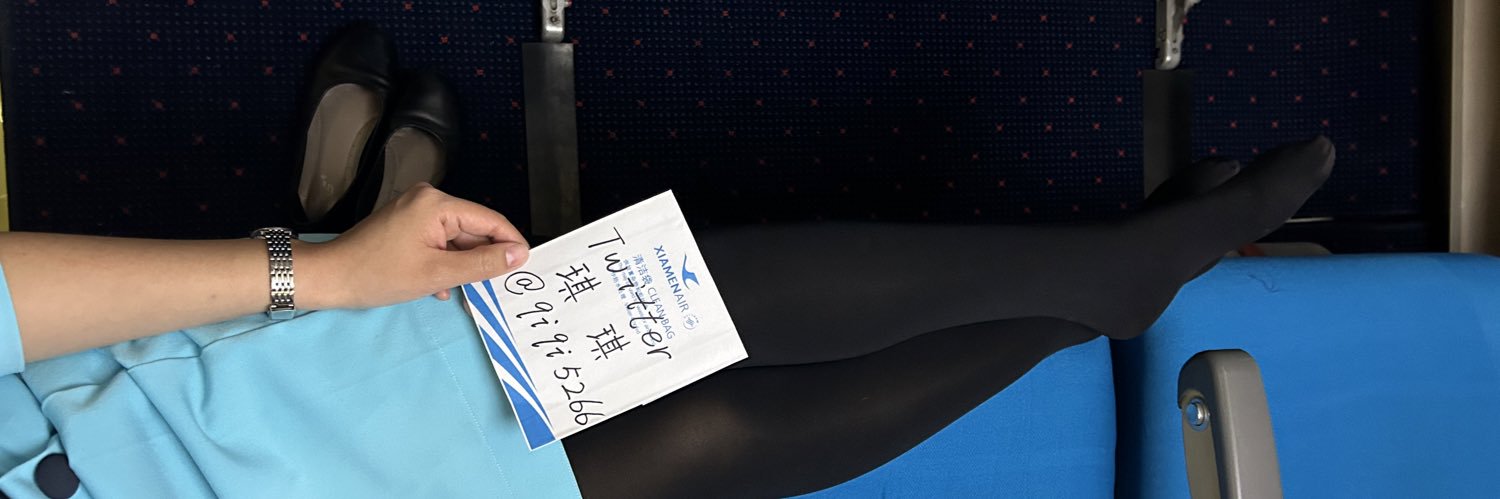 XIAMENAIR
清洁袋 CLEAN BAG
Twitter
琪琪
@qiqi5266